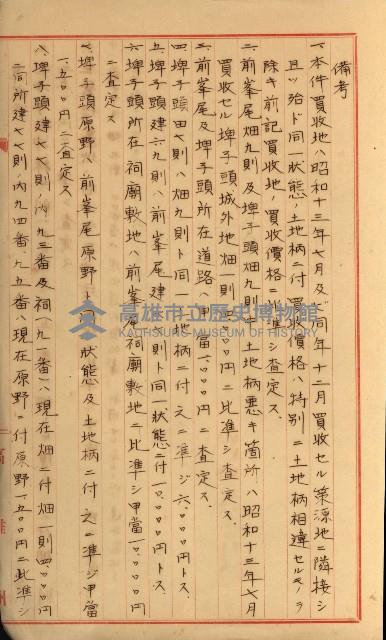 備考
一、本件買收地ハ昭和十三年七月及ビ同年十二月買收セル藥源地ニ隣接シ
且ツ殆ド同一狀態ノ土地柄ニ付買收價格ハ特別ニ土地柄相違セルモノヲ
除キ前記買收地ノ買收價格ニ比準シ査定ス.
二、前峯尾畑九則及埤子頭畑九則ノ土地柄悪キ箇所ハ昭和十三年七月
買收セル埤子頭城外地畑一則 ニ比準シ査定ス.
三、前峯尾及埤子頭所在道路ハ甲當 円ニ査定ス.
四、埤子頭田七則ハ畑九則ト同一土地柄ニ付之ニ準ジ六.〇〇〇円トス.
五、埤子頭建六九則ハ前峯尾建 則ト同一狀態ニ付一〇.〇〇〇円トス.
六、埤子頭所在祠廟敷地ハ前峯尾祠廟敷地ニ比準シ甲當一〇.〇〇〇円
ニ査定ス
七、埤子頭原野ハ前峯尾原野ト同一狀態及土地柄ニ付之ニ準ジ甲當
一.五〇〇円ニ査定ス
八、埤子頭建七七則ノ内九三番及祠(九一番)ハ現在畑ニ付畑一則四.〇〇〇円
ニ同所建七七則ノ内九四番、九五番ハ現在原野ニ付原野一.五〇〇円ニ比準シ
高雄市立歷史博物館
KAOHSIUNG MUSEUM OF HISTORY
高雄州